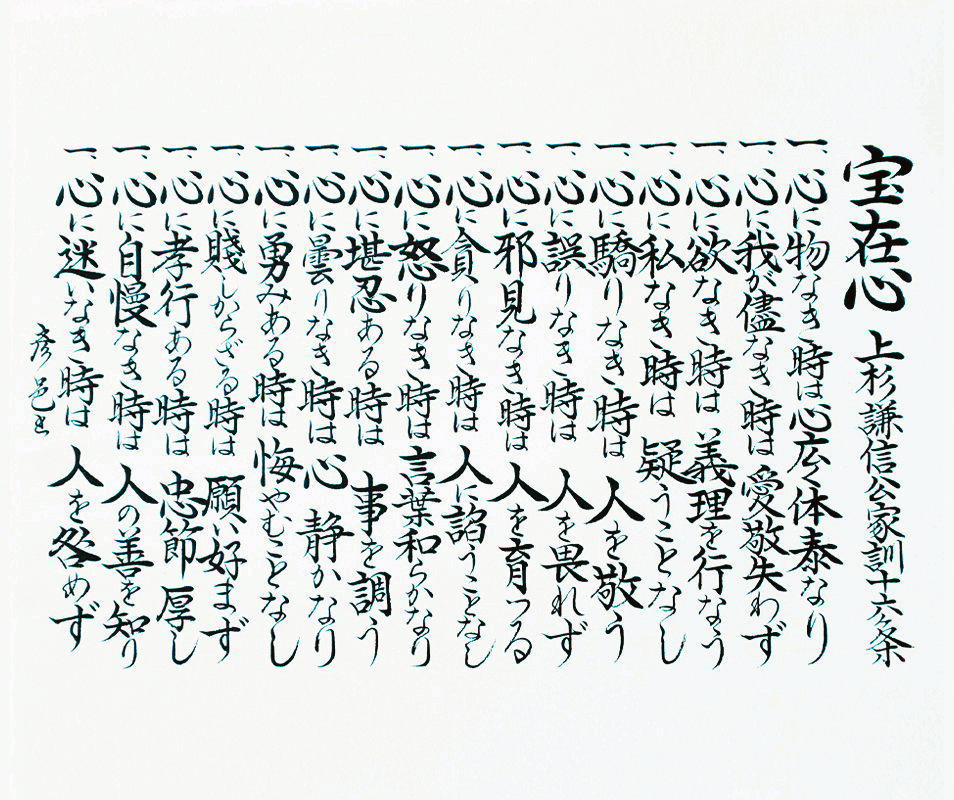 宝在心 上杉謙信公家訓十六ヶ条
一、心に物なき時は心広く体泰なり
一、心に我が儘なき時は 愛敬失わず
一、心に欲なき時は 義理を行なう
一、心に私なき時は 疑うことなし
一、心に驕りなき時は 人を敬う
一、心に誤りなき時は 人を畏れず
一、心に邪見なき時は 人を育つる
一、心に貪りなき時は 人に諂うことなし
一、心に怒りなき時は 言葉和らかなり
一、心に堪忍ある時は 事を調う
一、心に曇りなき時は 心静かなり
一、心に勇みある時は 悔やむことなし
一、心に賤しからざる時は 願い好まず
一、心に孝行ある時は 忠節厚し
一、心に自慢なき時は 人の善を知り
一、心に迷いなき時は 人を咎めず